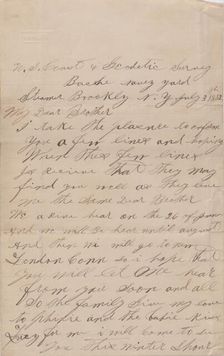 U. S. Coast & Geodetic Survey
Bache navy yard
Steamer Brooklyn N. Y. July 3th
My Dear Brother
I take the plasence to inform
you a few lines and hoping
When these few lines
is recieve That They may
find you well as They leave
me the Same Dear Brother
We arive hear on the 26 of June
and we will be hear until august
and Then we will go to new
London Conn so i hope that
you will let me hear
from you soon and all
So the family Give my love
to and the
for me i will come to see
you This winter Shore